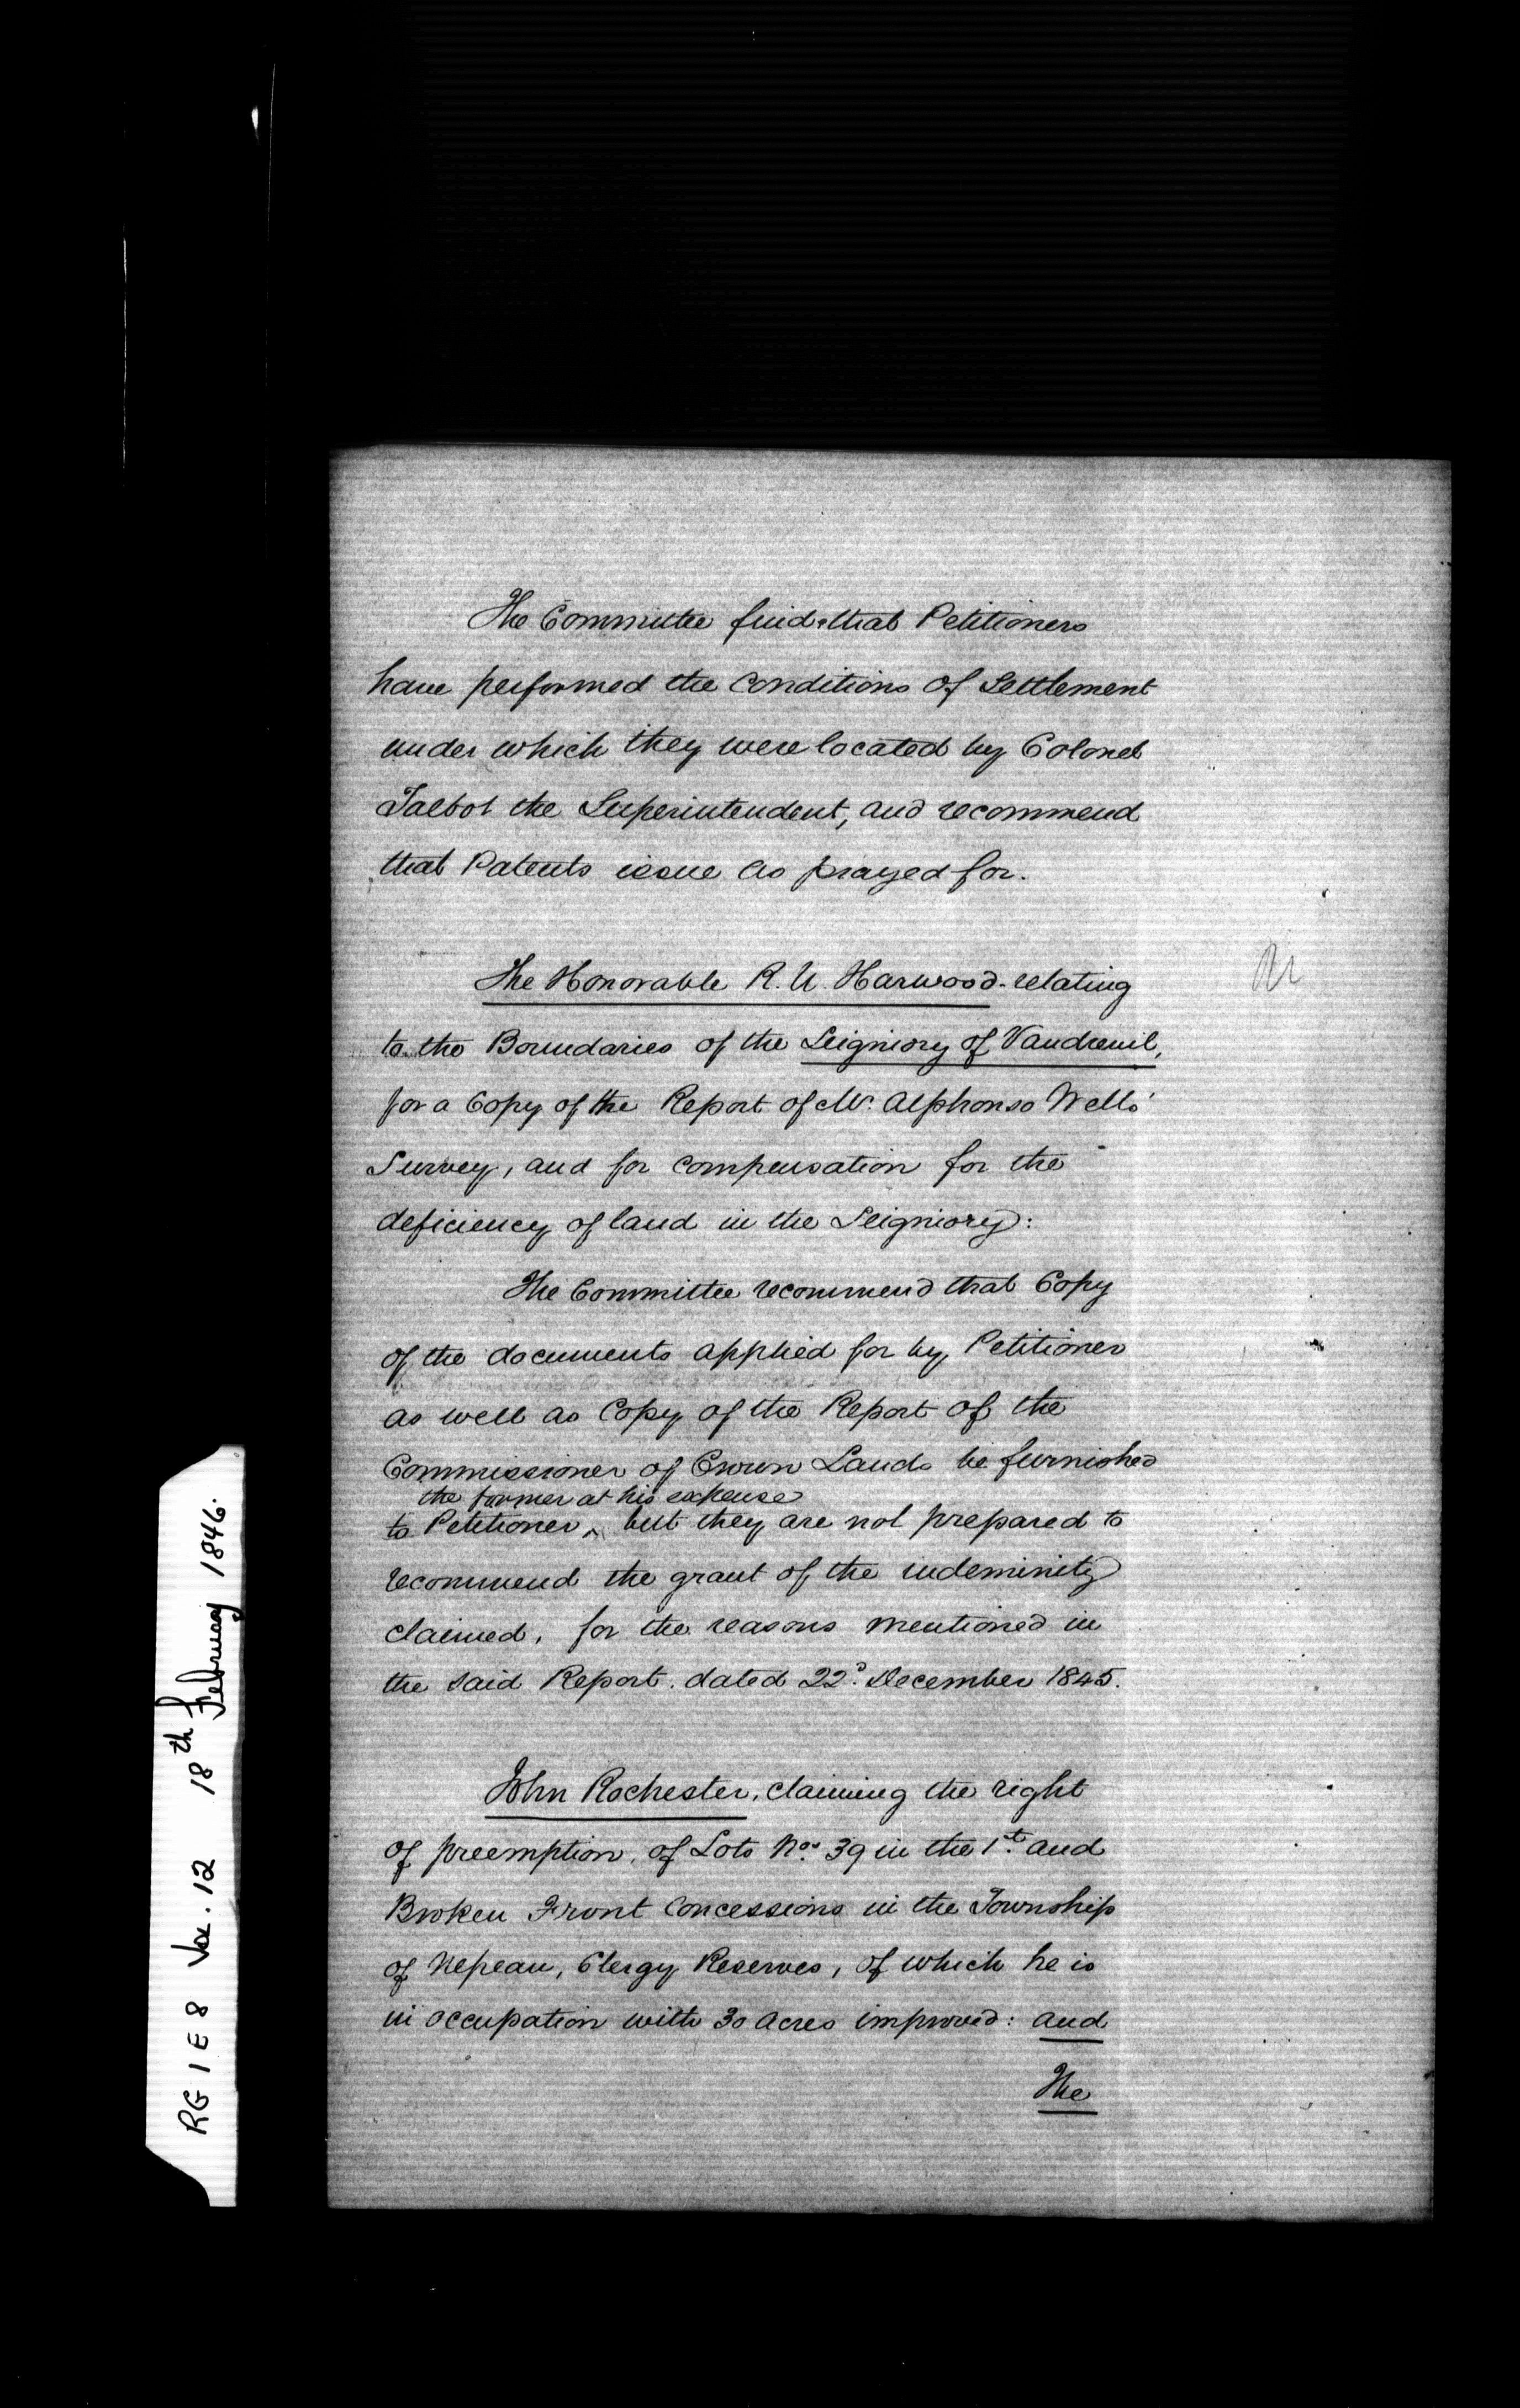 The Committee find that Petitioners
have performed the conditions of Settlement
under which they were located by Colonel
Talbot the Superintendent, and recommend
that Patents issue as prayed for.
The Honorable R. U. Harwood - relating
to the Boundaries of the Seigniory of Vaudreuil,
for a Copy of the Report of Mr. Alphonso Wells'
Survey, and for compensation for the
deficiency of land in the Seigniory:
The Committee recommend that Copy
of the documents applied for by Petitioner
as well as Copy of the Report of the
Commissioner of Crown Lands be furnished
the former at his expense
to Petitioner, ^ but they are not prepared to
recommend the grant of the indeminity
claimed, for the reasons mentioned in
the said Report. dated 22d. December 1845.
John Rochester, claiming the right
of preemption, of Lots Nos. 39 in the 1st. and
Broken Front Concessions in the Township
of Nepean, Clergy Reserves, of which he is
in occupation with 30 acres improved: and
The
RG 1 E 8 Vol. 12 18th February 1846.